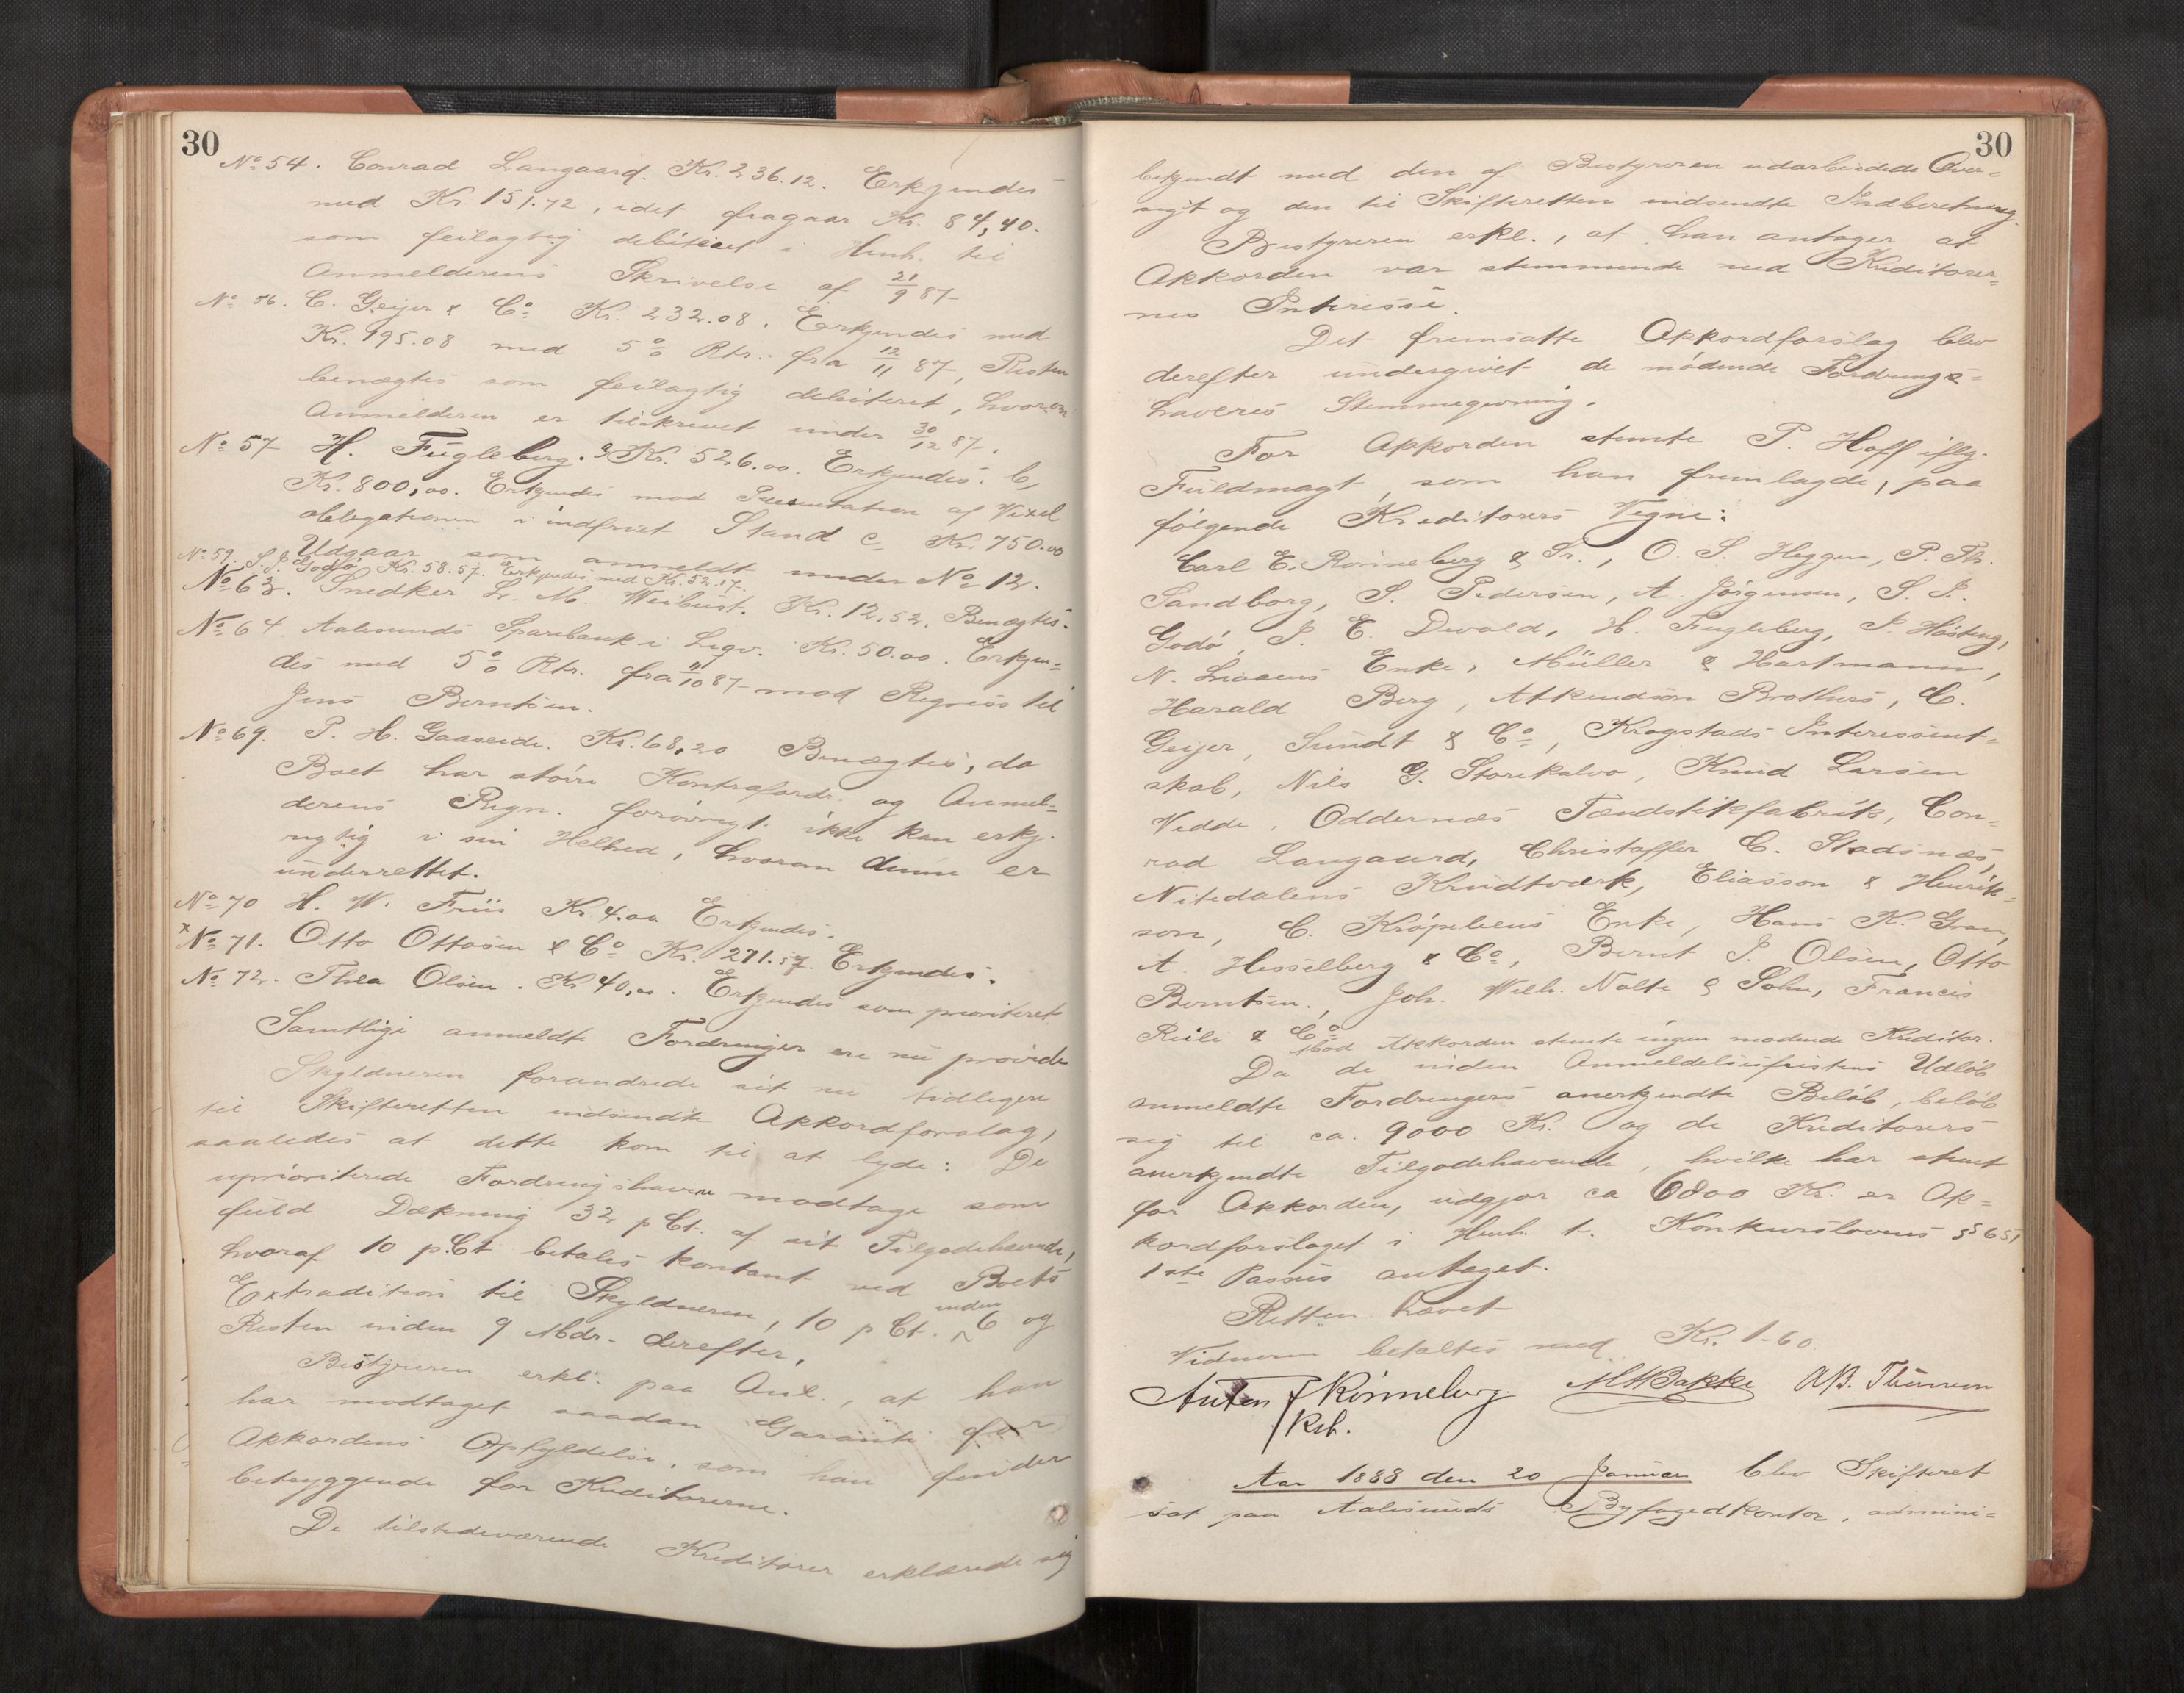 30
No 54. Conrad Langaard. Kr. 236.12. Erkjendes
med Kr. 151.72, idet fragaar Kr. 84,40.
som feilagtig debiteret i Henh. til
Anmelderens Skrivelse af 21/9 87
No 56. C. Geijer & Co Kr. 232.08. Erkjendes med
Kr. 195.08 med 5% Rtr. fra 12/11 87, Resten
benægtes som feilagtig debiteret, hvorom
Anmelderen er tilskrevet under 30/12 87.
No 57 H. Fugleberg. a, Kr. 526.00. Erkjendes. b,
Kr. 800,00. Erkjendes mod Præsentation af Vexel
obligationen i indfriet Stand c, Kr. 750.00
Udgaar som anmeldt under No 12.
No 59. S. J. Godø Kr. 58.57. Erkjendes med Kr. 52.17.
No 63. Snedker L. M. Weibust. Kr. 12,52. Benægtes.
No 64. Aalesunds Sparebank i Liqv. Kr. 50.00. Erkjen=
des med 5% Rtr. fra 11/10 87 mod Regress til
Jens Berntsen.
No 69. P. H. Gaaseide. Kr. 68,20 Benægtes, da
Boet har større Kontrafordr. og Anmel=
derens Regn. forøvrigt ikke kan erkj.
rigtig i sin Helhed, hvorom denne er
underrettet.
No 70 H. W. Friis Kr. 4.00 Erkjendes.
x No 71. Otto Ottosen & Co Kr. 271.57. Erkjendes.
No 72. Thea Olsen. Kr 40,00. Erkjendes som prioriteret
Samtlige anmeldte Fordringer ere nu prøvede
Skyldneren forandrede sit nu tidligere
til Skifteretten indsendte Akkordforslag,
saaledes at dette kom til at lyde: De
uprioriterede Fordringshavere modtage som
fuld Dækning 32 pCt. af sit Tilgodehavende,
hvoraf 10 p.Ct betales kontant ved Boets
Extradition til Skyldneren, 10 p Ct. inden 6 og
Resten inden 9 Mdr. derefter.
Bestyreren erkl. paa Anl., at han
har modtaget saadan Garanti for
Akkordens Opfyldelse, som han finder
betryggende for Kreditorerne.
De tilstedeværende Kreditorer erklærede sig
30
bekjendt med den af Bestyreren udarbeidede Over=
sigt og den til Skifteretten indsendte Indberetning.
Bestyreren erkl., at han antager at
Akkorden var stemmende med Kreditorer=
nes Interesse.
Det fremsatte Akkordforslag blev
derefter undergivet de mødende Fordrings=
haveres Stemmegivning.
For Akkorden stemte P. Hoff iflg.
Fuldmagt, som han fremlagde, paa
følgende Kreditorers Vegne:
Carl E. Rønneberg & Sr., O. S. Heggen, P. Th.
Sandborg, S. Pedersen, A. Jørgensen, S. J.
Godø, J. E. Devold, H. Fugleberg, P. Høsteng,
N. Liaaens Enke, Müller & Hartmann,
Harald Berg, Atkendson Brothers, C.
Geijer, Sundt & Co, Krogstads Interessent=
skab, Nils G. Storekalvo, Knud Larsen
Vedde, Oddernæs Tændstikfabrik, Con=
rad Langaard, Christoffer C. Stadsnæs,
Nitedalens Krudtværk, Eliasson & Henrik=
son, C. Krøpeliens Enke, Hans K. Gran,
A. Hesselberg & Co, Bernt J. Olsen, Otto
Berntsen, Joh. Wilh. Nolte & Sohn, Francis
Reile & Co
Mod Akkorden stemte ingen mødende Kreditor.
Da de inden Anmeldelsesfristens Udløb
anmeldte Fordringers anerkjendte Beløb, beløb
sig til ca. 9000 Kr. og de Kreditorers
anerkjendte Tilgodehavende, hvilke har stemt
for Akkorden, udgjør ca 6800 Kr. er Ak=
kordforslaget i Henh. t. Konkurslovens § 65,
1ste Passus antaget.
Retten hævet
Vidnerne betaltes med Kr. 1-60.
Anton Rønneberg. M Bakke A.B. Thinnesen
/ kst.
Aar 1888 den 20 Januar blev Skifteret
sat paa Aalesunds Byfogedkontor, admini=